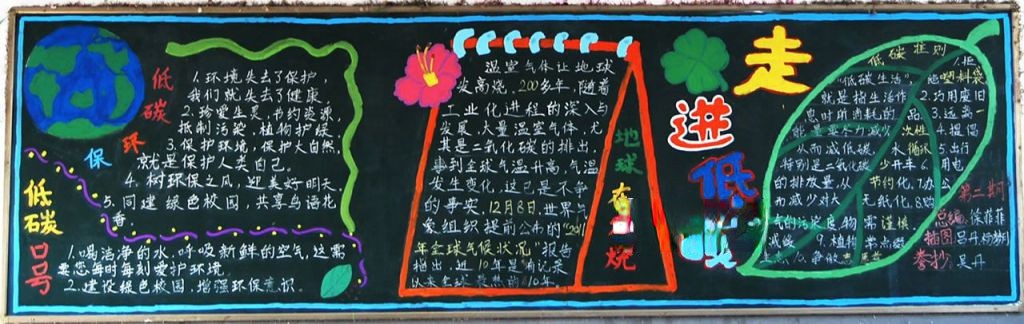 低碳环保
1.环境失去了保护，
我们就失去了健康
2.珍爱生灵，节约资源，
抵制污染，植物护绿
3.保护环境，保护大自然，
就是保护人类自己。
4.树环保之风，迎美好明天
5.同建绿色校园，共享鸟语花
香。
低碳口号
1.喝洁净的水，呼吸新鲜的空气，这需
要您每时每刻爱护环境。
2.建设绿色校园，增强环保意识。
温室气体让地球
发高烧，200多年，随着
工业化进程的深入与
发展，大量温室气体，尤
其是二氧化碳的排出，
导到全球气温升高，气温
发生变化，这已是不争
的事实，12月8日，世界气
象组织提前公布的
年全球气候状况"报告
指出，近10年是有记录
以来全球最热的10年。
地球在 烧
走进低
低碳准则
"低碳生活"
就是指生活作
息时所消耗的
从而减低碳
特别是二氧化碳
的排放量，从
而减少对大
气的污染
减缓
塑料袋
2.为用废旧
3.远离一
次性
4.提倡
循环
5.出行
少开车
6.用电
节约化，7.办公
无纸化，8.购
物需谨慎
9.植物
第二期
总编：徐菲菲
插图
誊抄：吴丹